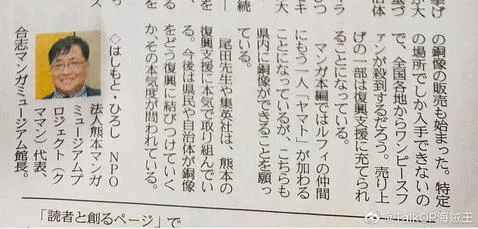 の銅像の販売も始まった。特定
の場所でしか入手できないの
で、全国各地からワンピースフ
ァンが殺到するだろう。売り上
げの一部は復興支援に充てられ
ることになっている。
マンガ本編ではルフィの仲間
にもう一人「ヤマト」が加わる
ことになっているが、こちらも
県内に銅像ができることを願っ
ている。
尾田先生や集英社は、熊本の
復興支援に本気で取り組んでい
る。今後は県民や自治体が銅像
をどう復興に結びつけていく
か、その本気度が問われている。
◇はしもと・ひろし NPO
法人熊本マンガ
ミュージアムプ
ロジェクト(ク
ママン)代表、
合志マンガミュージアム館長。
「読者と創るページ」で
@TalkOP海贼王